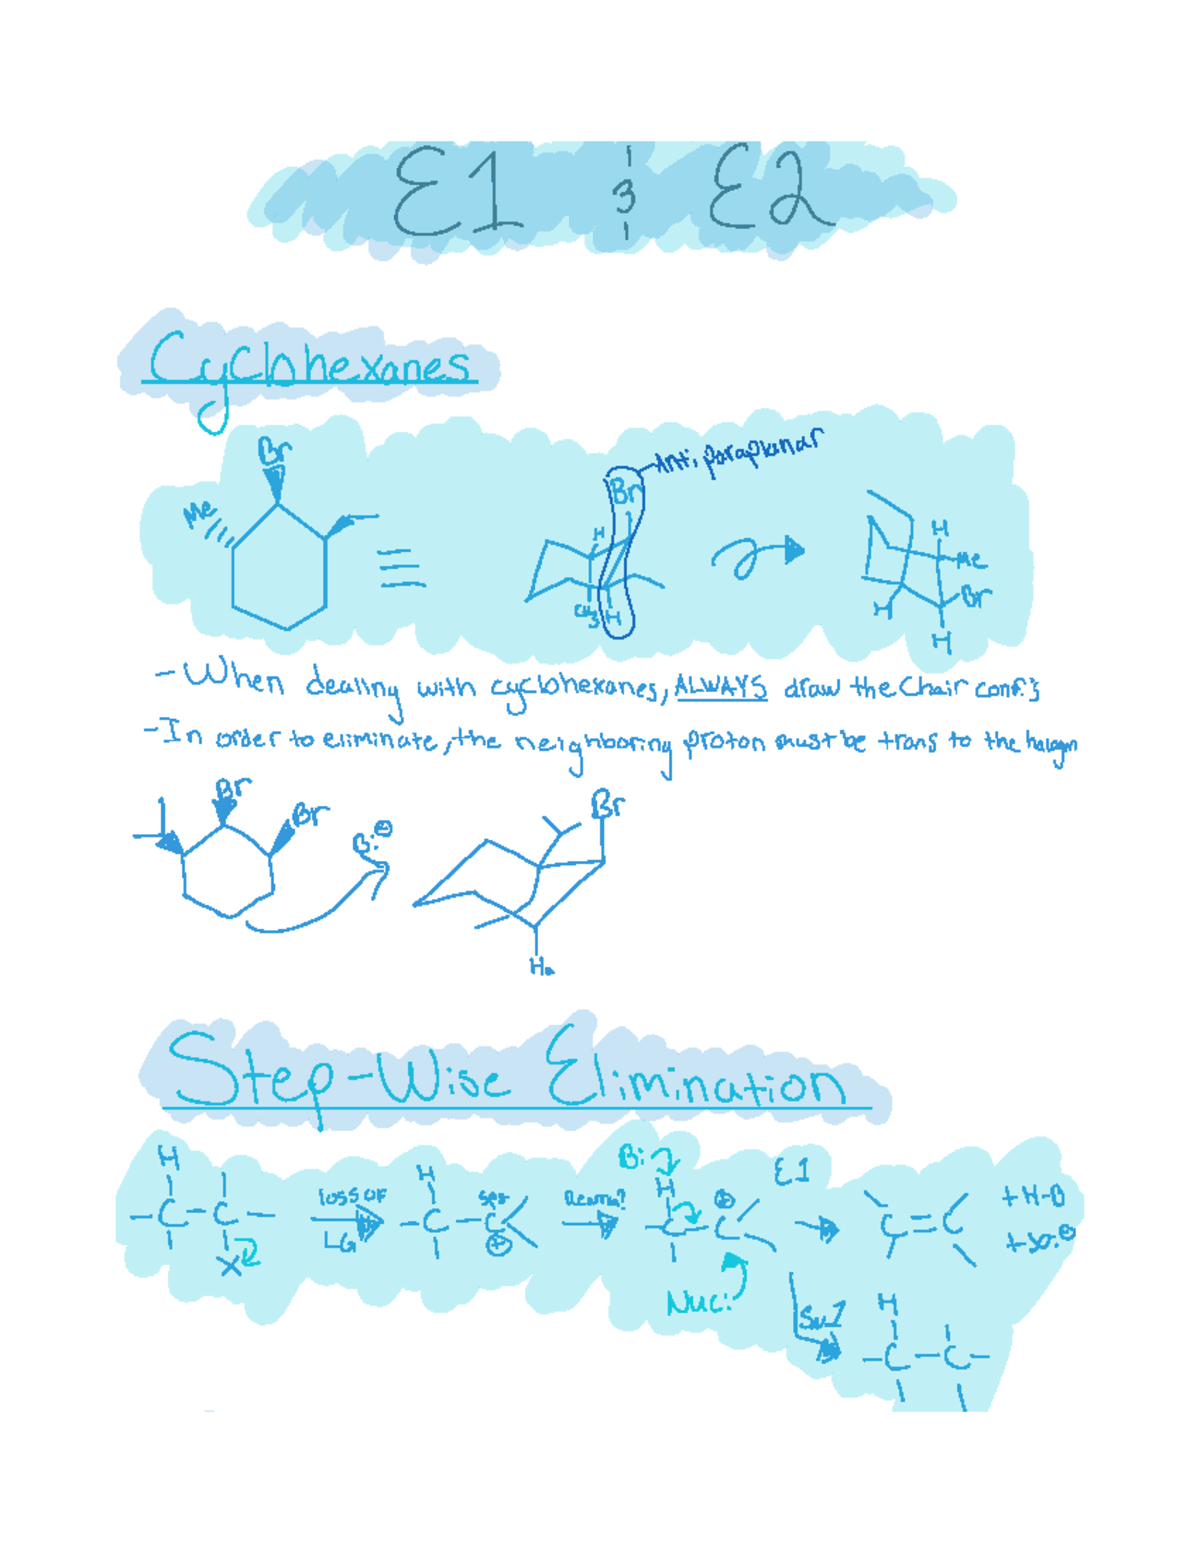 E1 & E2
Cyclohexanes
Br
Me
Anti paraplanar
Br
H
CH3
H
H
Me
Br
H
H
-When dealing with cyclohexanes, ALWAYS draw the Chair conf.
-In order to eliminate, the neighboring proton must be trans to the halogen
Br
Br
B:⊖
Br
Ha
Step-Wise Elimination
H
-C-C-
X
loss of
LG
H
-C-C
sp2
⊕
Rearra?
B:
H
C-C
⊕
Nuc:
E1
C=C
+H-B
SN1
H
-C-C-